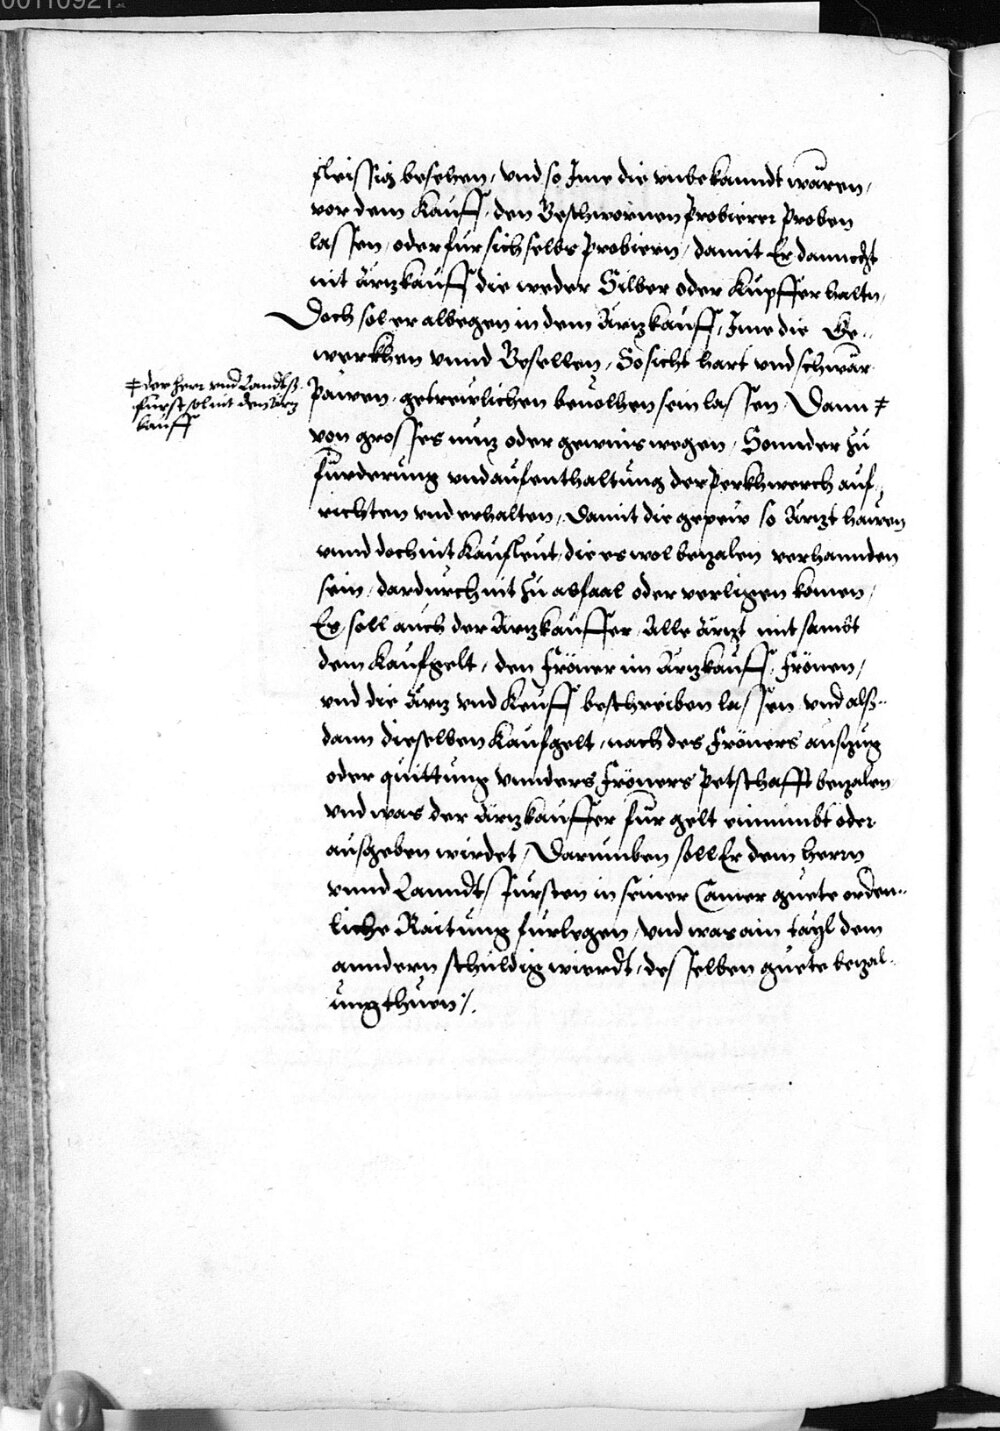 00110921
fleissig besehen, vnd so Ime die vnbekanndt wären,
vor dem Kauff, den Beschwornen Probierer Proben
lassen, oder fur sich selbs Probiern, damit Er dannocht
nit Ärtzkauff die weder Silber oder Kupffer haltn,
Doch sol er albegen in dem Ärtzkauff, Ime die Ge-
werkhen vnnd Gesellen, So sicht hart vnd schwär
Pawen, getrewlichen beuolhen sein lassen, Dann ǂ
ǂ der herr vnd Landtß-
fürst sol nit den Ärtz
kauff
von grosses nutz oder gewins wegen, Sonnder zu
fürderung vnd aufenthaltung der Perkhwerch auf-
richten vnd erhalten, Damit die gepew so Ärtzt hawen
vnnd doch nit Kaufleut, die es wol betzalen verhannden
sein, dardurch nit zu abfaal oder verligen komen,
Es soll auch der Ärtzkauffer Alle Ärtzt mit sambt
dem Kaufgelt, den Fröner im Ärtzkauff, Frönen,
vnd die Ärtz vnd Keuff beschreiben lassen vnd alß-
dann dieselben Kaufgelt, nach des Fröners auszug
oder quittung vnnders Fröners Petschafft betzalen
vnd was der Ärtzkauffer für gelt einnimbt oder
ausgeben wirdet, Darumben soll Er dem herrn
vnnd Lanndtsfürsten in seiner Camer guete orden-
liche Raitung fürlegen, vnd was ain tayl dem
anndern schuldig wierdt, desselben guete betzal-
ung thuen /.